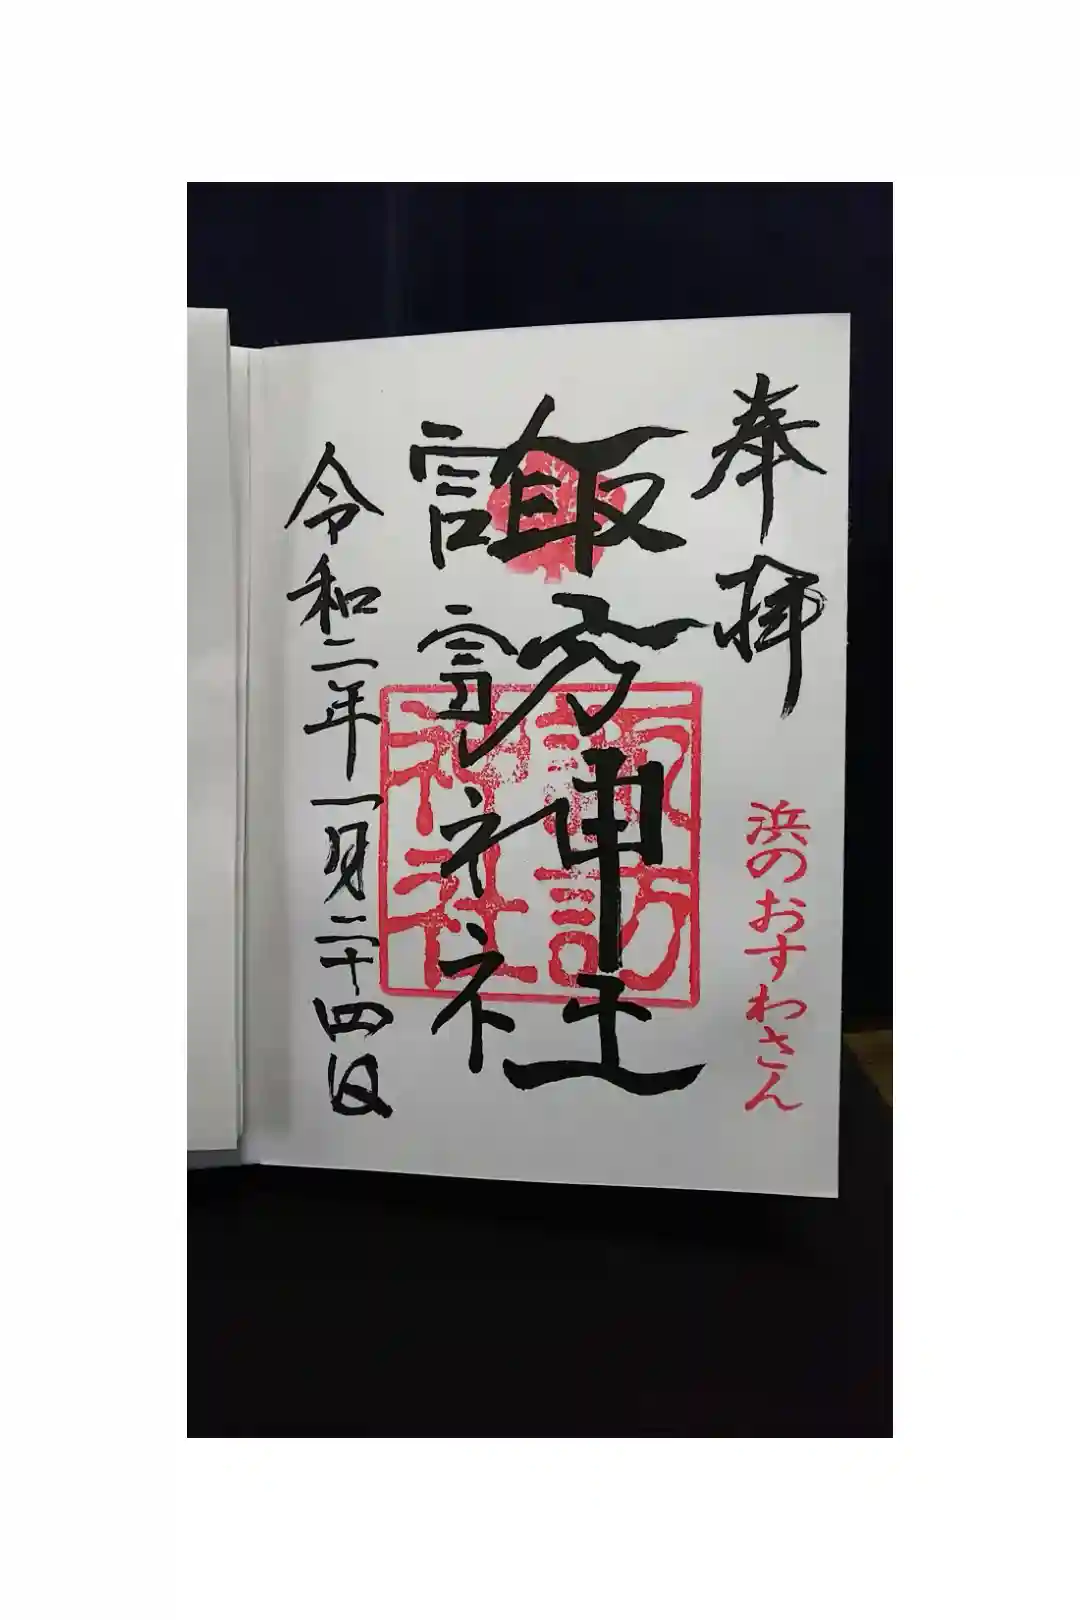 奉拝
浜のおすわさん
諏訪神社
諏訪神社
令和二年一月二十四日